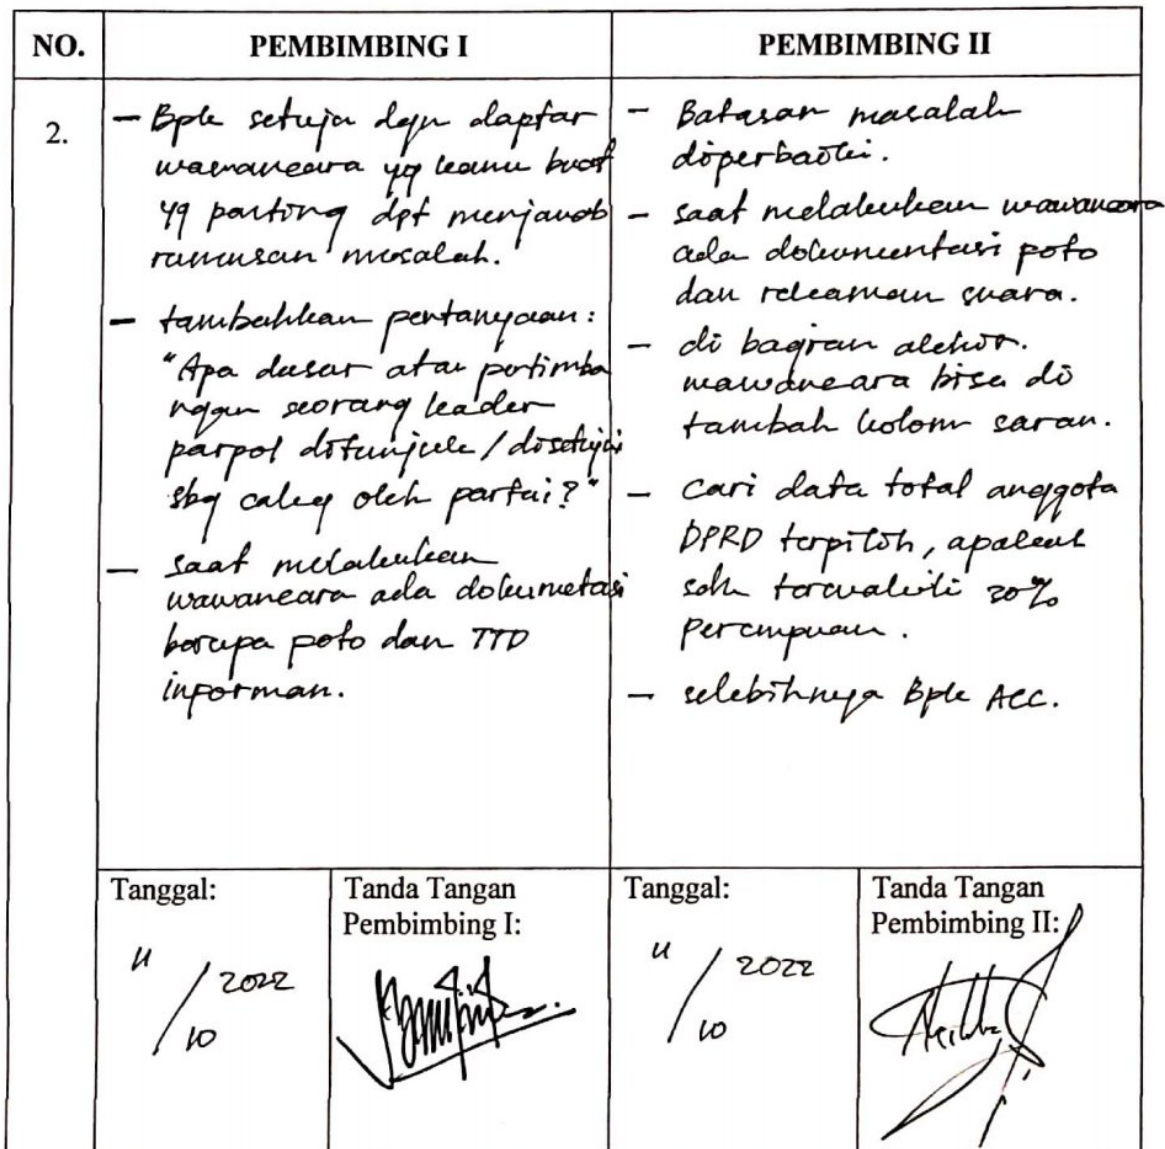 NO.
PEMBIMBING I
PEMBIMBING II
2.
- Bpk setuju dgn daptar
wawancara yg kamu buat
yg penting dpt menjawab
rumusan masalah.
- tambahkan pertanyaan:
"Apa dasar atau pertimba
ngan seorang leader
parpol ditunjuk / disetujui
sbg caleg oleh partai?"
- saat melakukan
wawancara ada dokumetasi
berupa poto dan TTD
informan.
- Batasan masalah
diperbaiki.
- saat melakukan wawancara
ada dokumentasi poto
dan rekaman suara.
- di bagian akhir.
wawancara bisa di
tambah kolom saran.
- cari data total anggota
DPRD terpilih, apakah
sdh terwakili 30%
perempuan.
- selebihnya Bpk ACC.
Tanggal:
11/10 2022
Tanda Tangan
Pembimbing I:
Tanggal:
11/10 2022
Tanda Tangan
Pembimbing II: